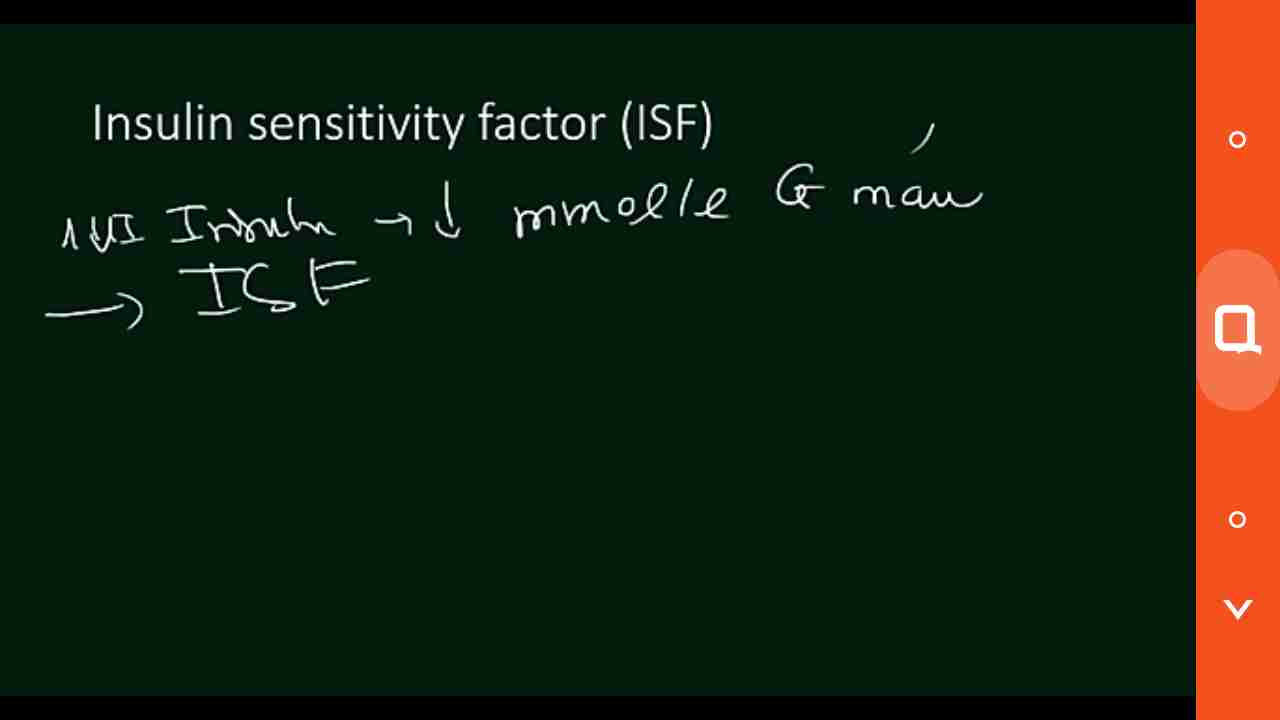 Insulin sensitivity factor (ISF)
1UI Insulin → ↓ mmol/l G máu
→ ISF